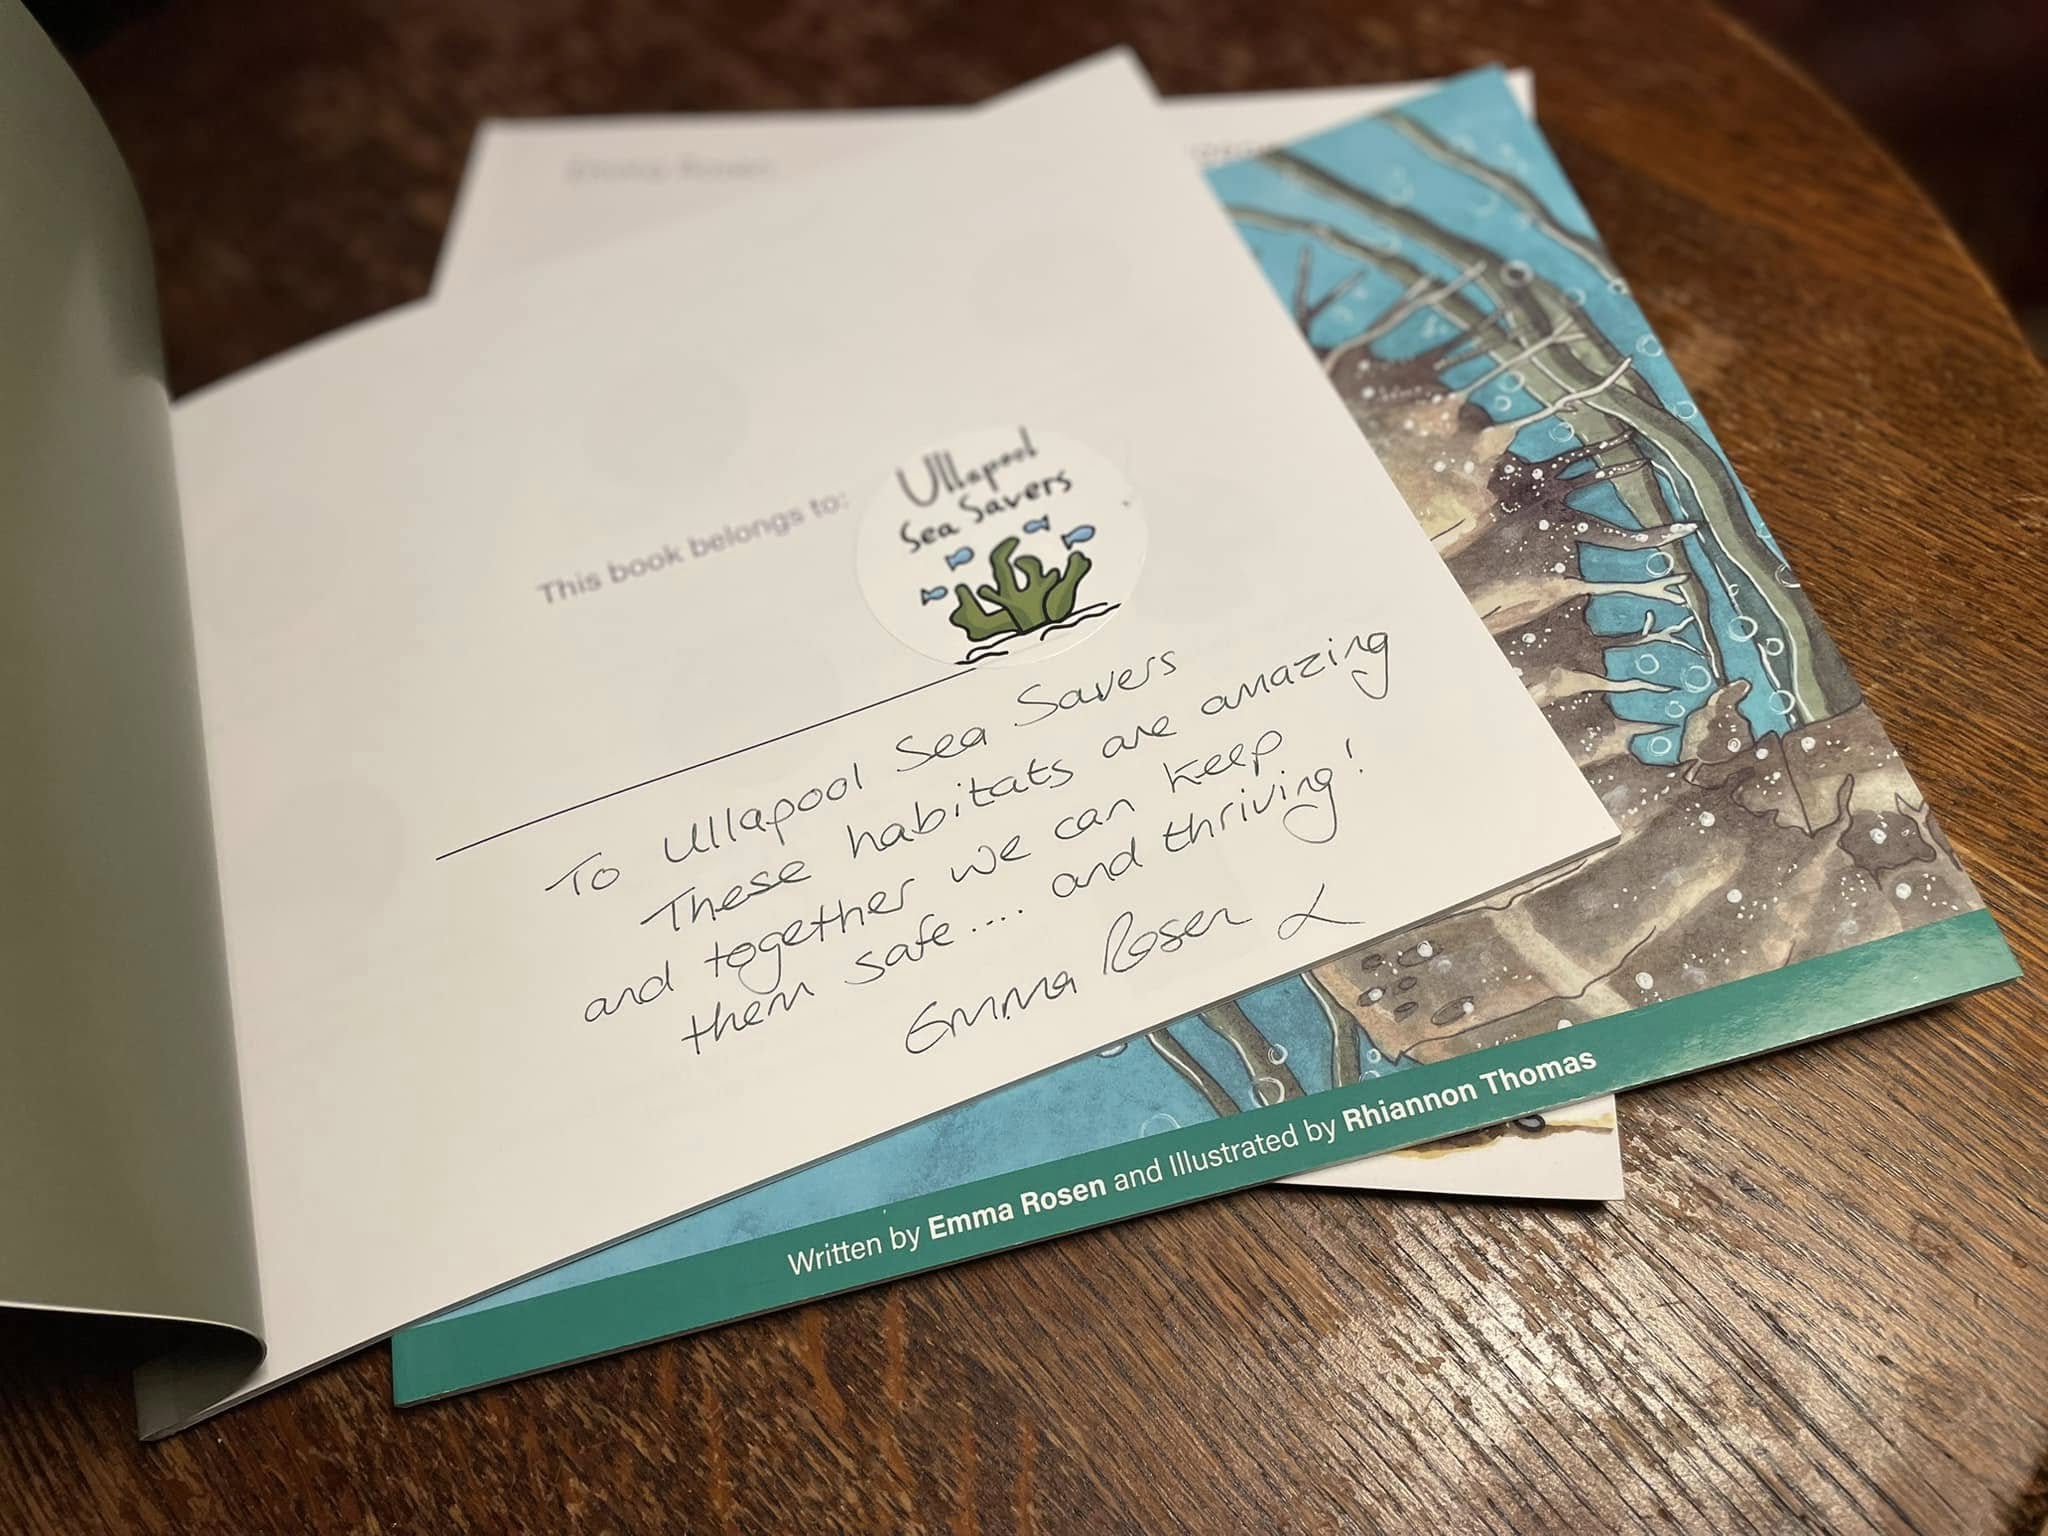 Emma Rosen
This book belongs to:
Ullapool
Sea Savers
To Ullapool Sea Savers
These habitats are amazing
and together we can keep
them safe.... and thriving!
Emma Rosen
Written by Emma Rosen and Illustrated by Rhiannon Thomas